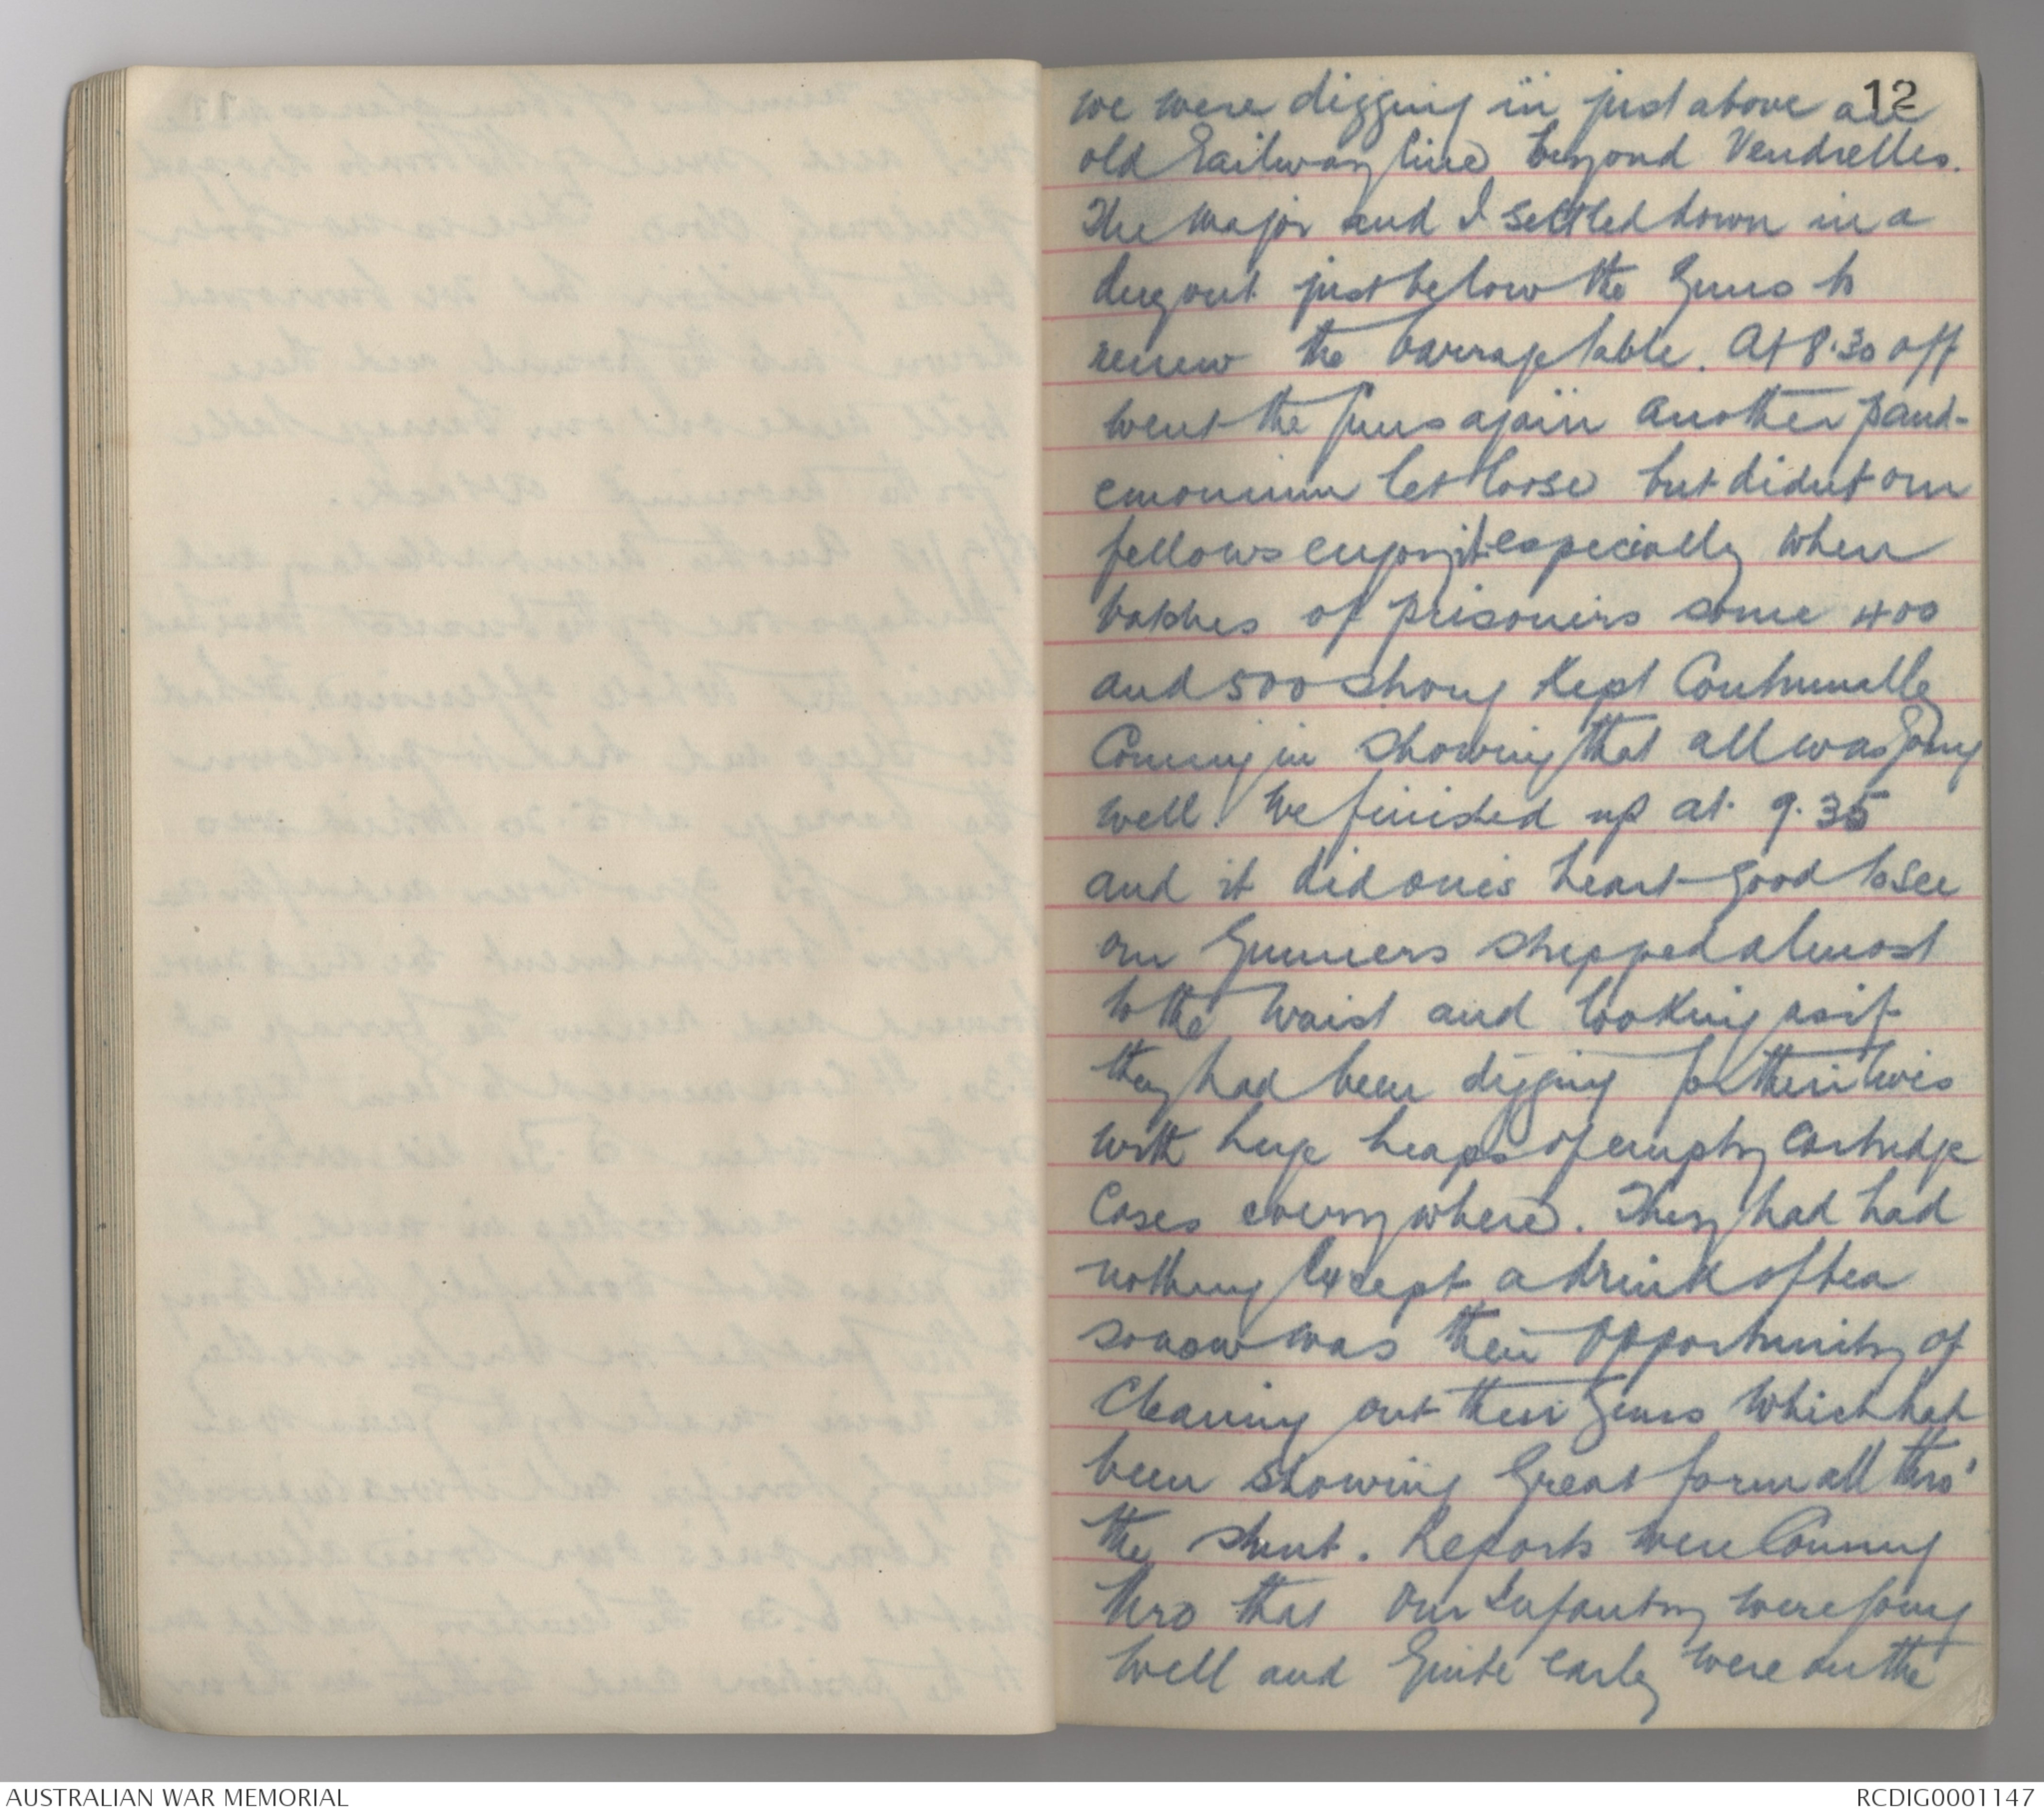 12
we were digging in just above an
old Railway line beyond Vendrelles.
The Major and I settled down in a
dugout just below the guns to
renew the barrage table. At 8.30 off
went the guns again another pand-
emonium let loose but didnt our
fellows enjoy it especially when
batches of prisoners some 400
and 500 strong kept continually
coming in showing that all was going
well. We finished up at 9.35
and it did one's heart good to see
our gunners stripped almost
to the waist and looking as if
they had been digging for their lives
with huge heaps of empty cartridge
cases everywhere. They had had
nothing except a drink of tea
so now was their opportunity of
cleaning out their guns which had
been showing great form all thro'
the stunt. Reports were coming
thro that our Infantry were going
well and quite early were on the
AUSTRALIAN WAR MEMORIAL
RCDIG0001147